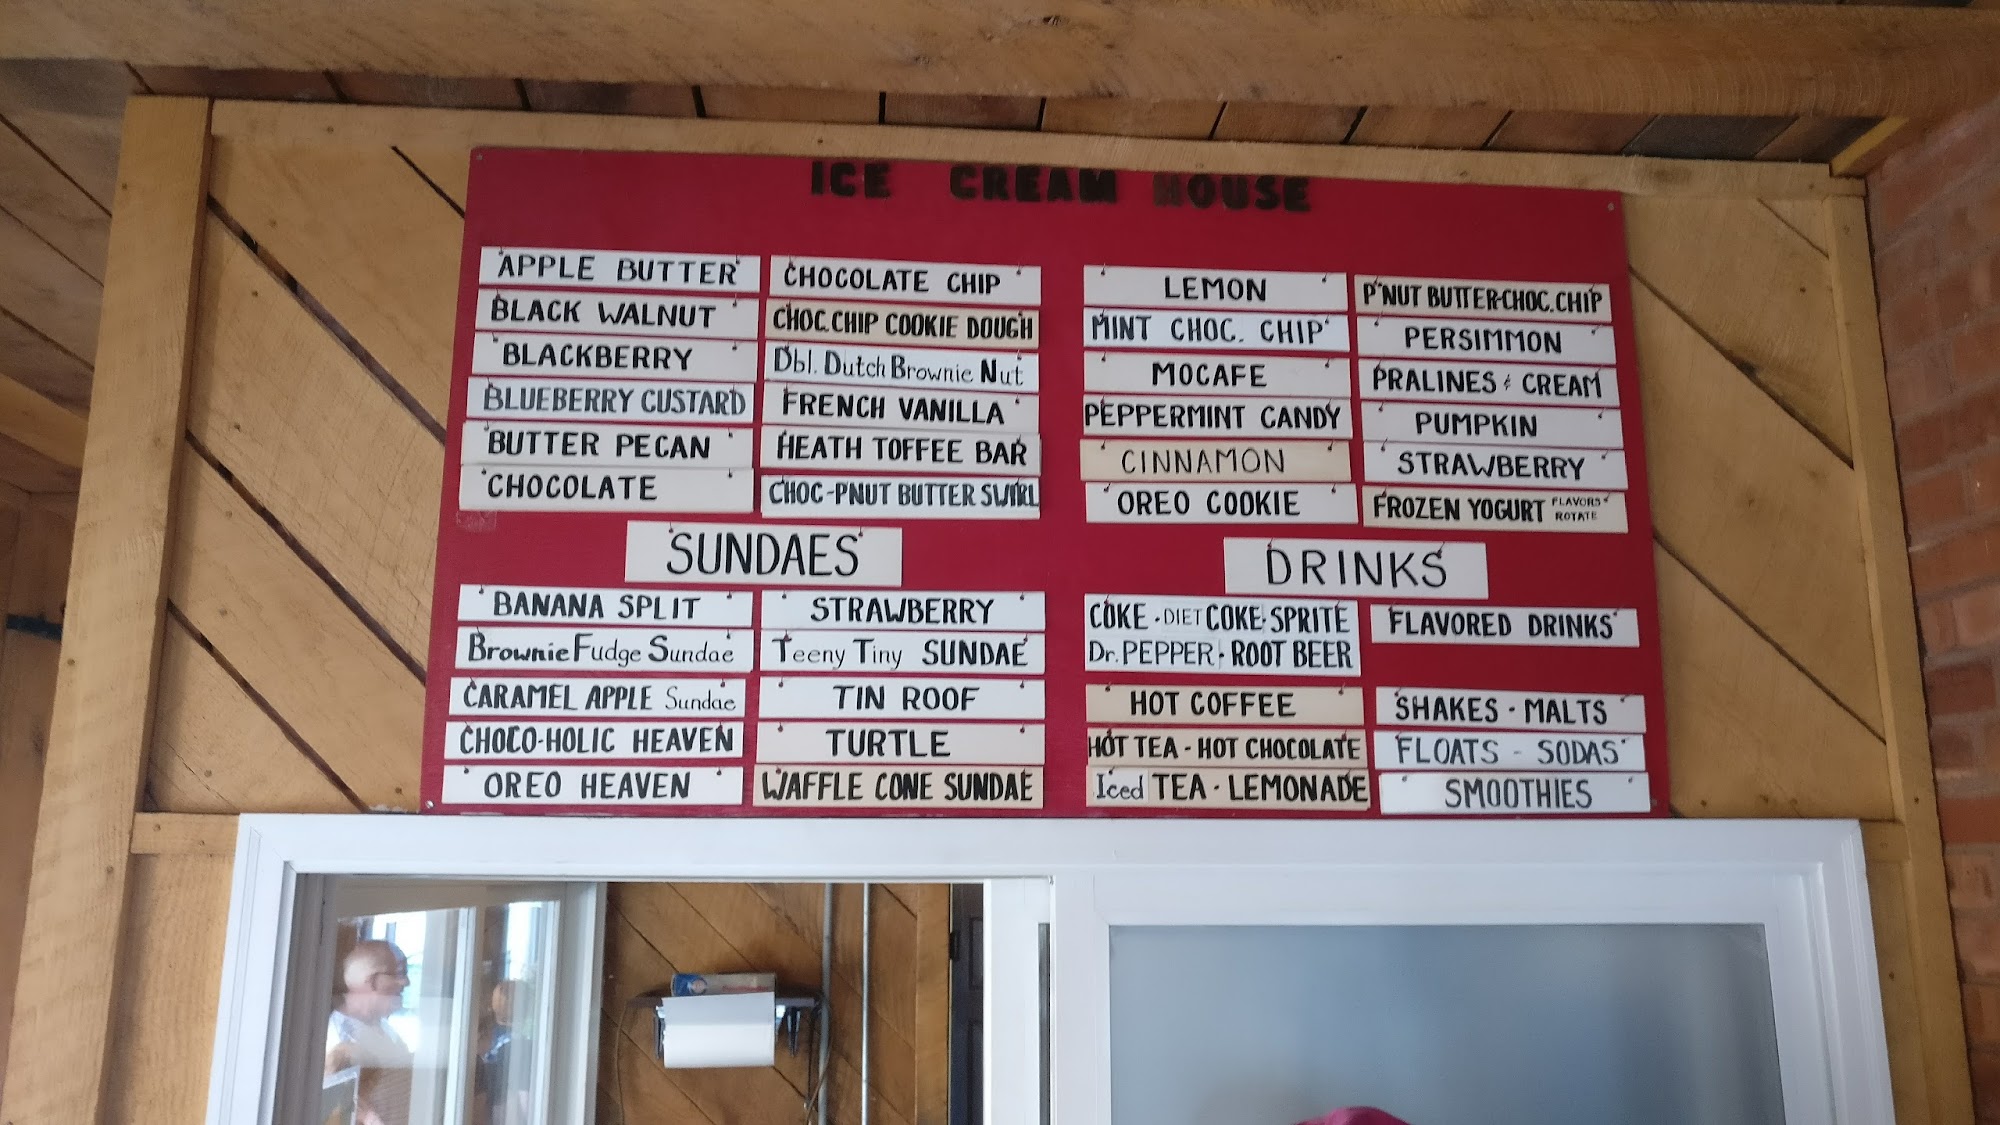 ICE CREAM HOUSE
APPLE BUTTER
BLACK WALNUT
BLACKBERRY
BLUEBERRY CUSTARD
BUTTER PECAN
CHOCOLATE
CHOCOLATE CHIP
CHOC. CHIP COOKIE DOUGH
Dbl. Dutch Brownie Nut
FRENCH VANILLA
HEATH TOFFEE BAR
CHOC-PNUT BUTTER SWIRL
LEMON
MINT CHOC. CHIP
MOCAFE
PEPPERMINT CANDY
CINNAMON
OREO COOKIE
P'NUT BUTTER-CHOC. CHIP
PERSIMMON
PRALINES & CREAM
PUMPKIN
STRAWBERRY
FROZEN YOGURT FLAVORS ROTATE
SUNDAES
BANANA SPLIT
Brownie Fudge Sundae
CARAMEL APPLE Sundae
CHOCO-HOLIC HEAVEN
OREO HEAVEN
STRAWBERRY
Teeny Tiny SUNDAE
TIN ROOF
TURTLE
WAFFLE CONE SUNDAE
DRINKS
COKE · DIET COKE · SPRITE
Dr. PEPPER · ROOT BEER
HOT COFFEE
HOT TEA - HOT CHOCOLATE
Iced TEA · LEMONADE
FLAVORED DRINKS
SHAKES · MALTS
FLOATS - SODAS
SMOOTHIES